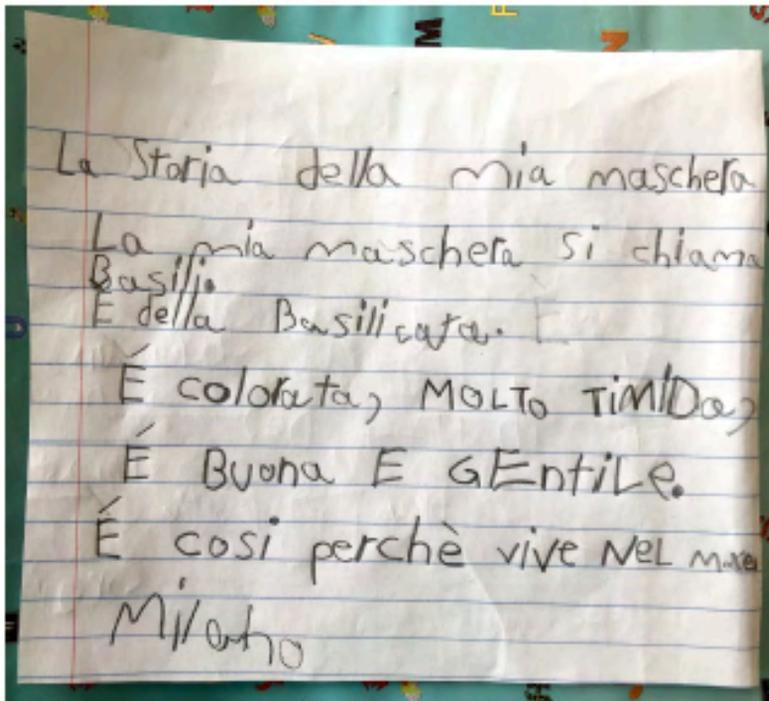 La Storia della mia maschera
La mia maschera si chiama
Basili.
E della Basilicata.
É colorata, MOLTO TiMIDa,
É BUona E GEntiLe.
É cosi perchè vive NeL mare
Milano